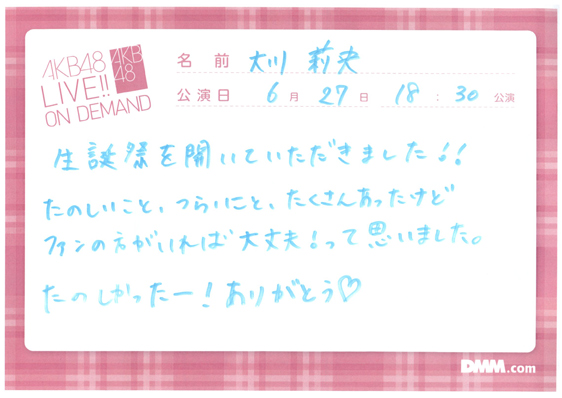 AKB48
LIVE!!
ON DEMAND
AKB
48
名 前 大川 莉央
公演日 6月27日 18:30 公演
生誕祭を開いていただきました!!
たのしいこと、つらいこと、たくさんあったけど
ファンの方がいれば大丈夫!って思いました。
たのしかったー!ありがとう♡
DMM.com